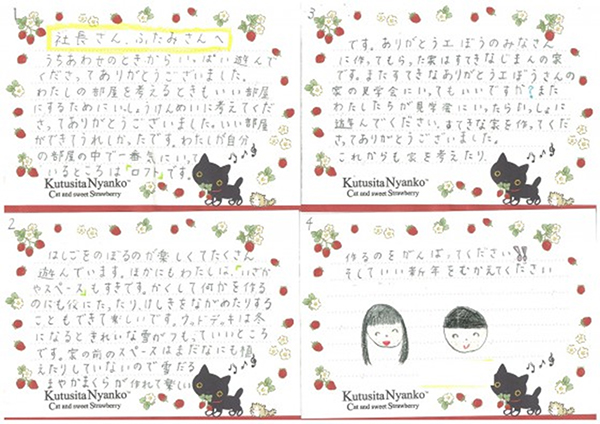 1
社長さん、ふたみさんへ
うちあわせのときからいっぱい遊んで
くださってありがとうございました。
わたしの部屋を考えるときもいい部屋
にするためにいっしょうけんめいに考えてくだ
さってありがとうございました。いい部屋
ができてうれしかったです。わたしが自分
の部屋の中で一番気にいって
いるところは「ロフト」です。
Kutusita Nyanko™
Cat and sweet Strawberry
2
はしごをのぼるのが楽しくてたくさん
遊んでいます。ほかにもわたしは、「いざか
やスペース」もすきです。かくして何かを作る
のにも役にたったり、けしきをながめたりする
こともできて楽しいです。ウッドデッキは冬
になるときれいな雪がつもっていいところ
です。家の前のスペースはまだなにも植
えたりしていないので雪だる
まやかまくらが作れて楽しい
Kutusita Nyanko™
Cat and sweet Strawberry
3
です。ありがとう工ぼうのみなさん
に作ってもらった家はすてきなじまんの家
です。またすてきなありがとう工ぼうさんの
家の見学会にいってもいいですか?また
わたしたちが見学会にいったらいっしょに
遊んでください。すてきな家を作ってくだ
さってありがとうございました。
これからも家を考えたり、
Kutusita Nyanko™
Cat and sweet Strawberry
4
作るのをがんばってください!!
そしていい新年をむかえてください
Kutusita Nyanko™
Cat and sweet Strawberry